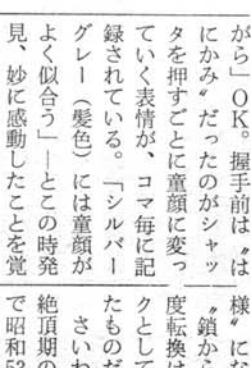 がら」OK。握手前は〝は
にかみ〟だったのがシャッ
タを押すごとに童顔に変っ
ていく表情が、コマ毎に記
録されている。「シルバー
グレー（髪色）には童顔が
よく似合う」―とこの時発
見、妙に感動したことを覚
様〟にな
〝鎖から
度転換は
クとして
たものだ
さいわ
絶頂期の
で昭和53